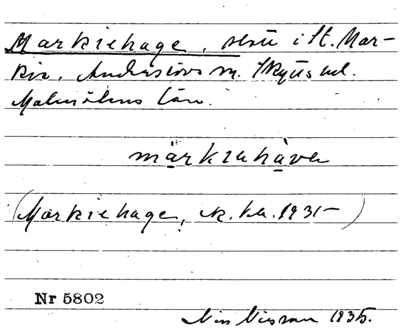 Markiehage, i St. Mar-
kie, Anderslövs sn. Skytts hd.
Malmöhus län.
markiahava
(Markiehage, ek. ka. 1931-)
Nr 5802
Nils Nilsson 1935.